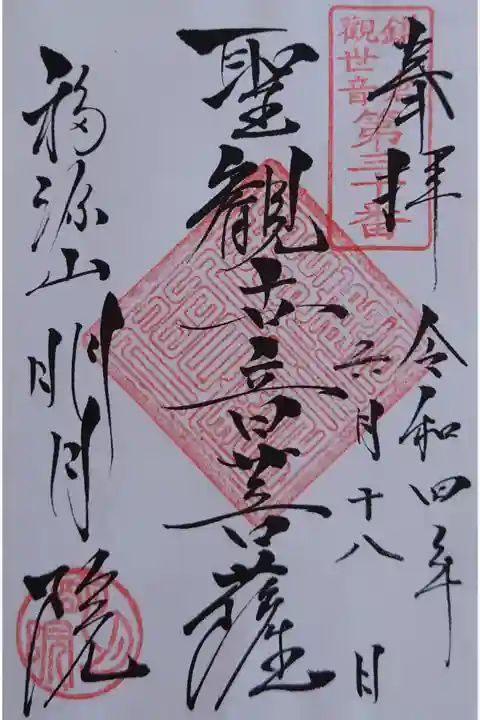 鎌倉
觀世音
第三十番
奉拝
令和四年
六月十八日
聖観世音菩薩
福源山明月院